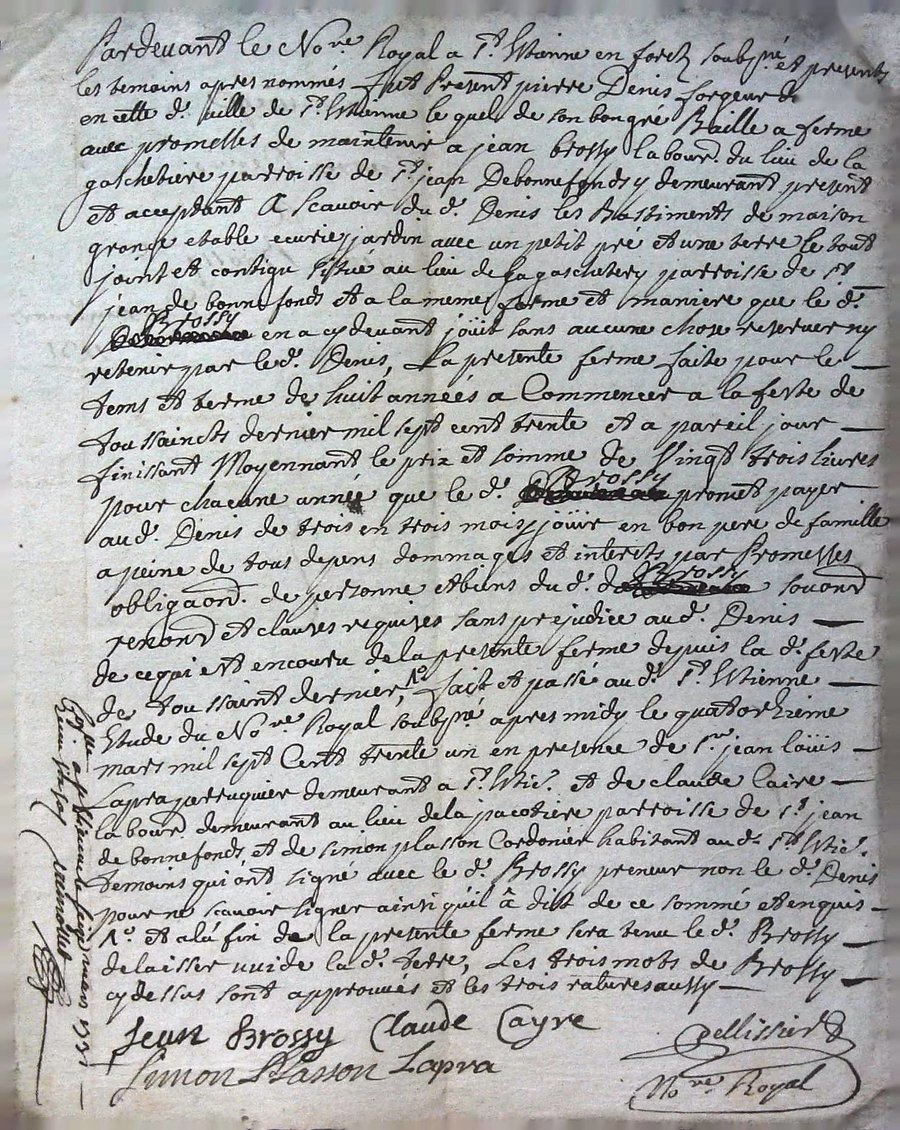 Pardevant le Nore Royal a St. Etienne en forez soubsné et presents
les temoins apres nommés fut Present pierre Denis forgeur dt
en cette d. ville de St. Etienne le quel de son bon gré Baille a ferme
avec promesses de maintenir a jean brossy labour. du lieu de la
gaschetiere parroisse de St. jean Debonnefonds y demeurant present
et acceptant A Scavoir du d. Denis les Bastiments de maison
grange etable ecurie jardin avec un petit pré et une terre le tout
joint et contigu situé au lieu de la gaschetiery parroisse de St
jean de bonnefonds et a la meme forme et maniere que le d.
Brossy en a cy devant joüit sans aucune chose reserver ny
retenir par le d. Denis, La presente ferme faite pour le
tems et terme de huit années a Commencer a la feste de
toussaincts dernier mil sept cent trente et a pareil jour
finissant Moyennant le prix et somme de Vingt trois livres
pour chacune année que le d. Brossy promet payer
au d. Denis de trois en trois mois joüir en bon pere de famille
a peine de tous depens dommages et interets par Promesses
obligaond. de personne et biens du d. Brossy soumond
renond et clauses requises sans prejudice au d. Denis
de ce qui est encouru de la presente ferme depuis la d. feste
de toussaint dernier, 1o. fait et passé au d. St. Etienne
Etude du Nore Royal soubsné apres midy le quatorzieme
mars mil sept Cent trente un en presence de Sr jean loüis
Lapra perruquier demeurant a St. Etie. et de claude Caire
labour. demeurant au lieu de la jacotiere parroisse de St. jean
de bonnefonds et de simon plasson Cordonier habitant au d. St Etie.
temoins qui ont signé avec le d. Brossy preneur non le d. Denis
pour ne scavoir signer ainsi quil â dit de ce sommé et enquis
1o. et a la fin de la presente ferme sera tenu le d. Brossy
delaisser vuide la d. terre, Les trois mots de Brossy
cy dessus sont approuvés et les trois ratures aussy
Jean Brossy Claude Cayre
Simon Plasson Lapra
Pellissier
Nore Royal
mars 1731